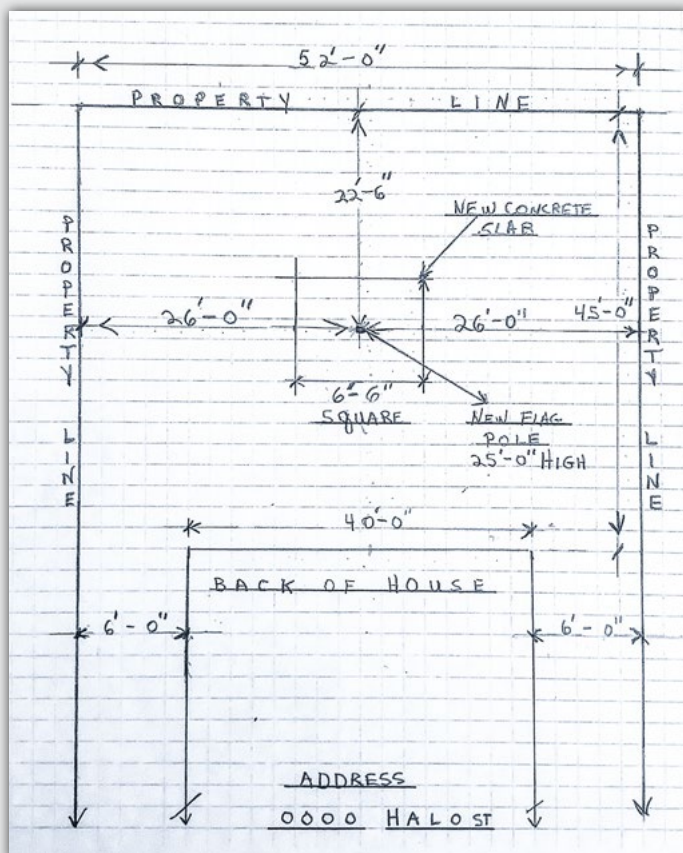 52'-0"
PROPERTY LINE
22'-6"
NEW CONCRETE
SLAB
PROPERTY LINE
PROPERTY LINE
26'-0"
26'-0"
45'-0"
6'-6"
SQUARE
NEW FLAG
POLE
25'-0" HIGH
40'-0"
BACK OF HOUSE
6'-0"
6'-0"
ADDRESS
0000 HALO ST